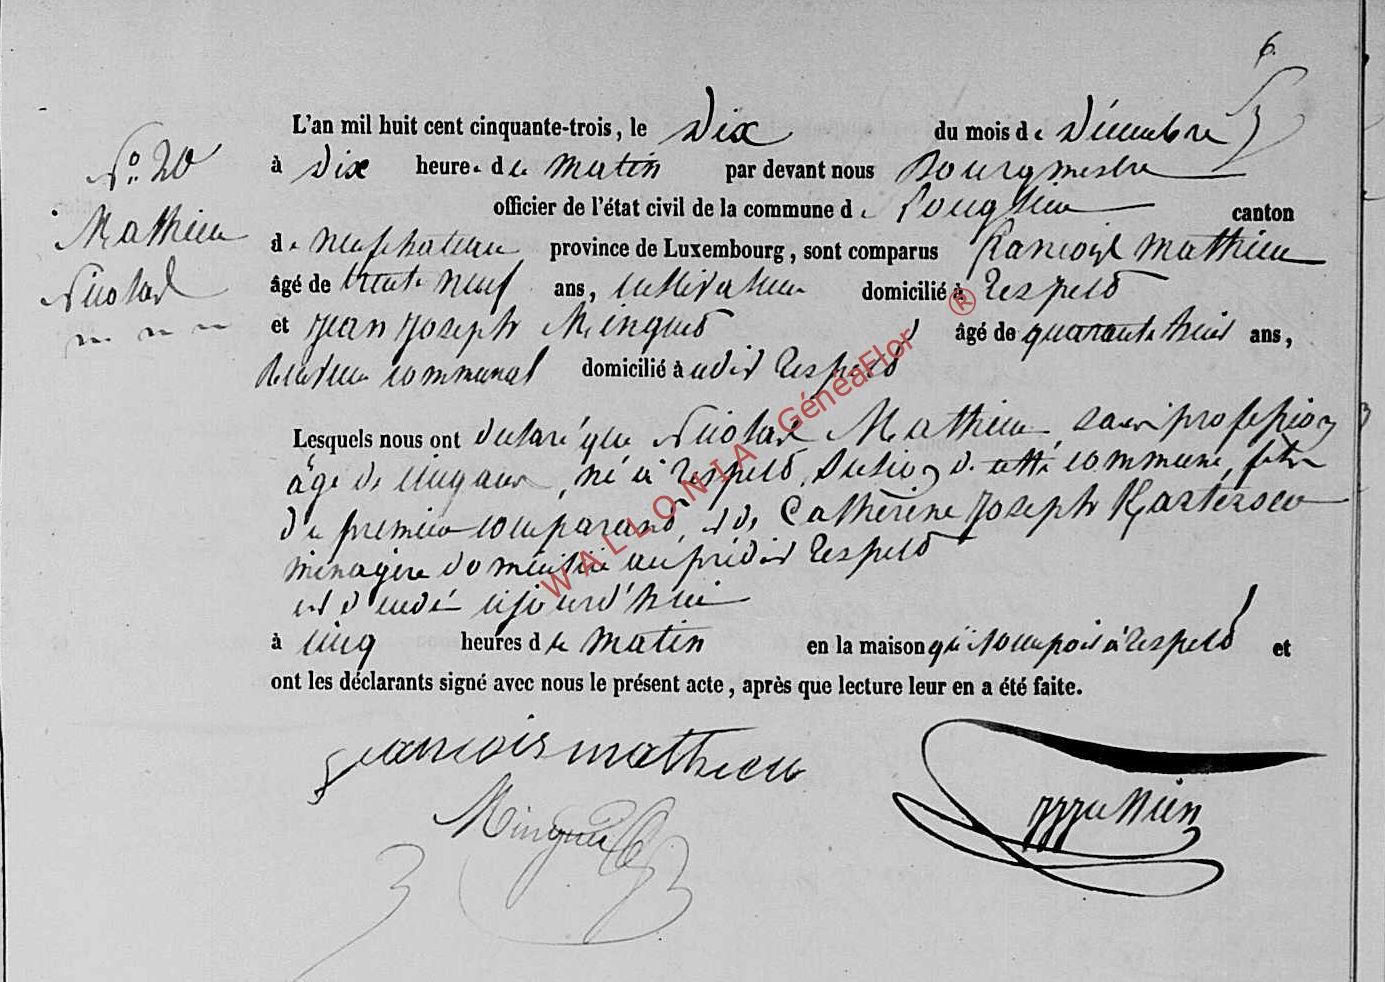 6.
L'an mil huit cent cinquante-trois, le Dix du mois de Décembre
N° 20
à Dix heures du matin par devant nous Bourgmestre
Mathieu
officier de l'état civil de la commune de canton
de neufchateau province de Luxembourg, sont comparus françois Mathieu
Nicolas
âgé de trente neuf ans, cultivateur domicilié à Respelt
et Jean Joseph Minguet âgé de quarante huit ans,
communal domicilié à udit Respelt
Lesquels nous ont declaré que Nicolas Mathieu, sans profession
âgé de cinq ans, né à Respelt, section de cette commune, fils
du premier comparant, et de Catherine Joseph
ménagère domiciliée au prédit Respelt
est décédé aujourd'hui
à cinq heures du matin en la maison qu'il occupoit à Respelt et
ont les déclarants signé avec nous le présent acte, après que lecture leur en a été faite.
francois mathieu
Minguet
WALLONIA GénéaFlor ®